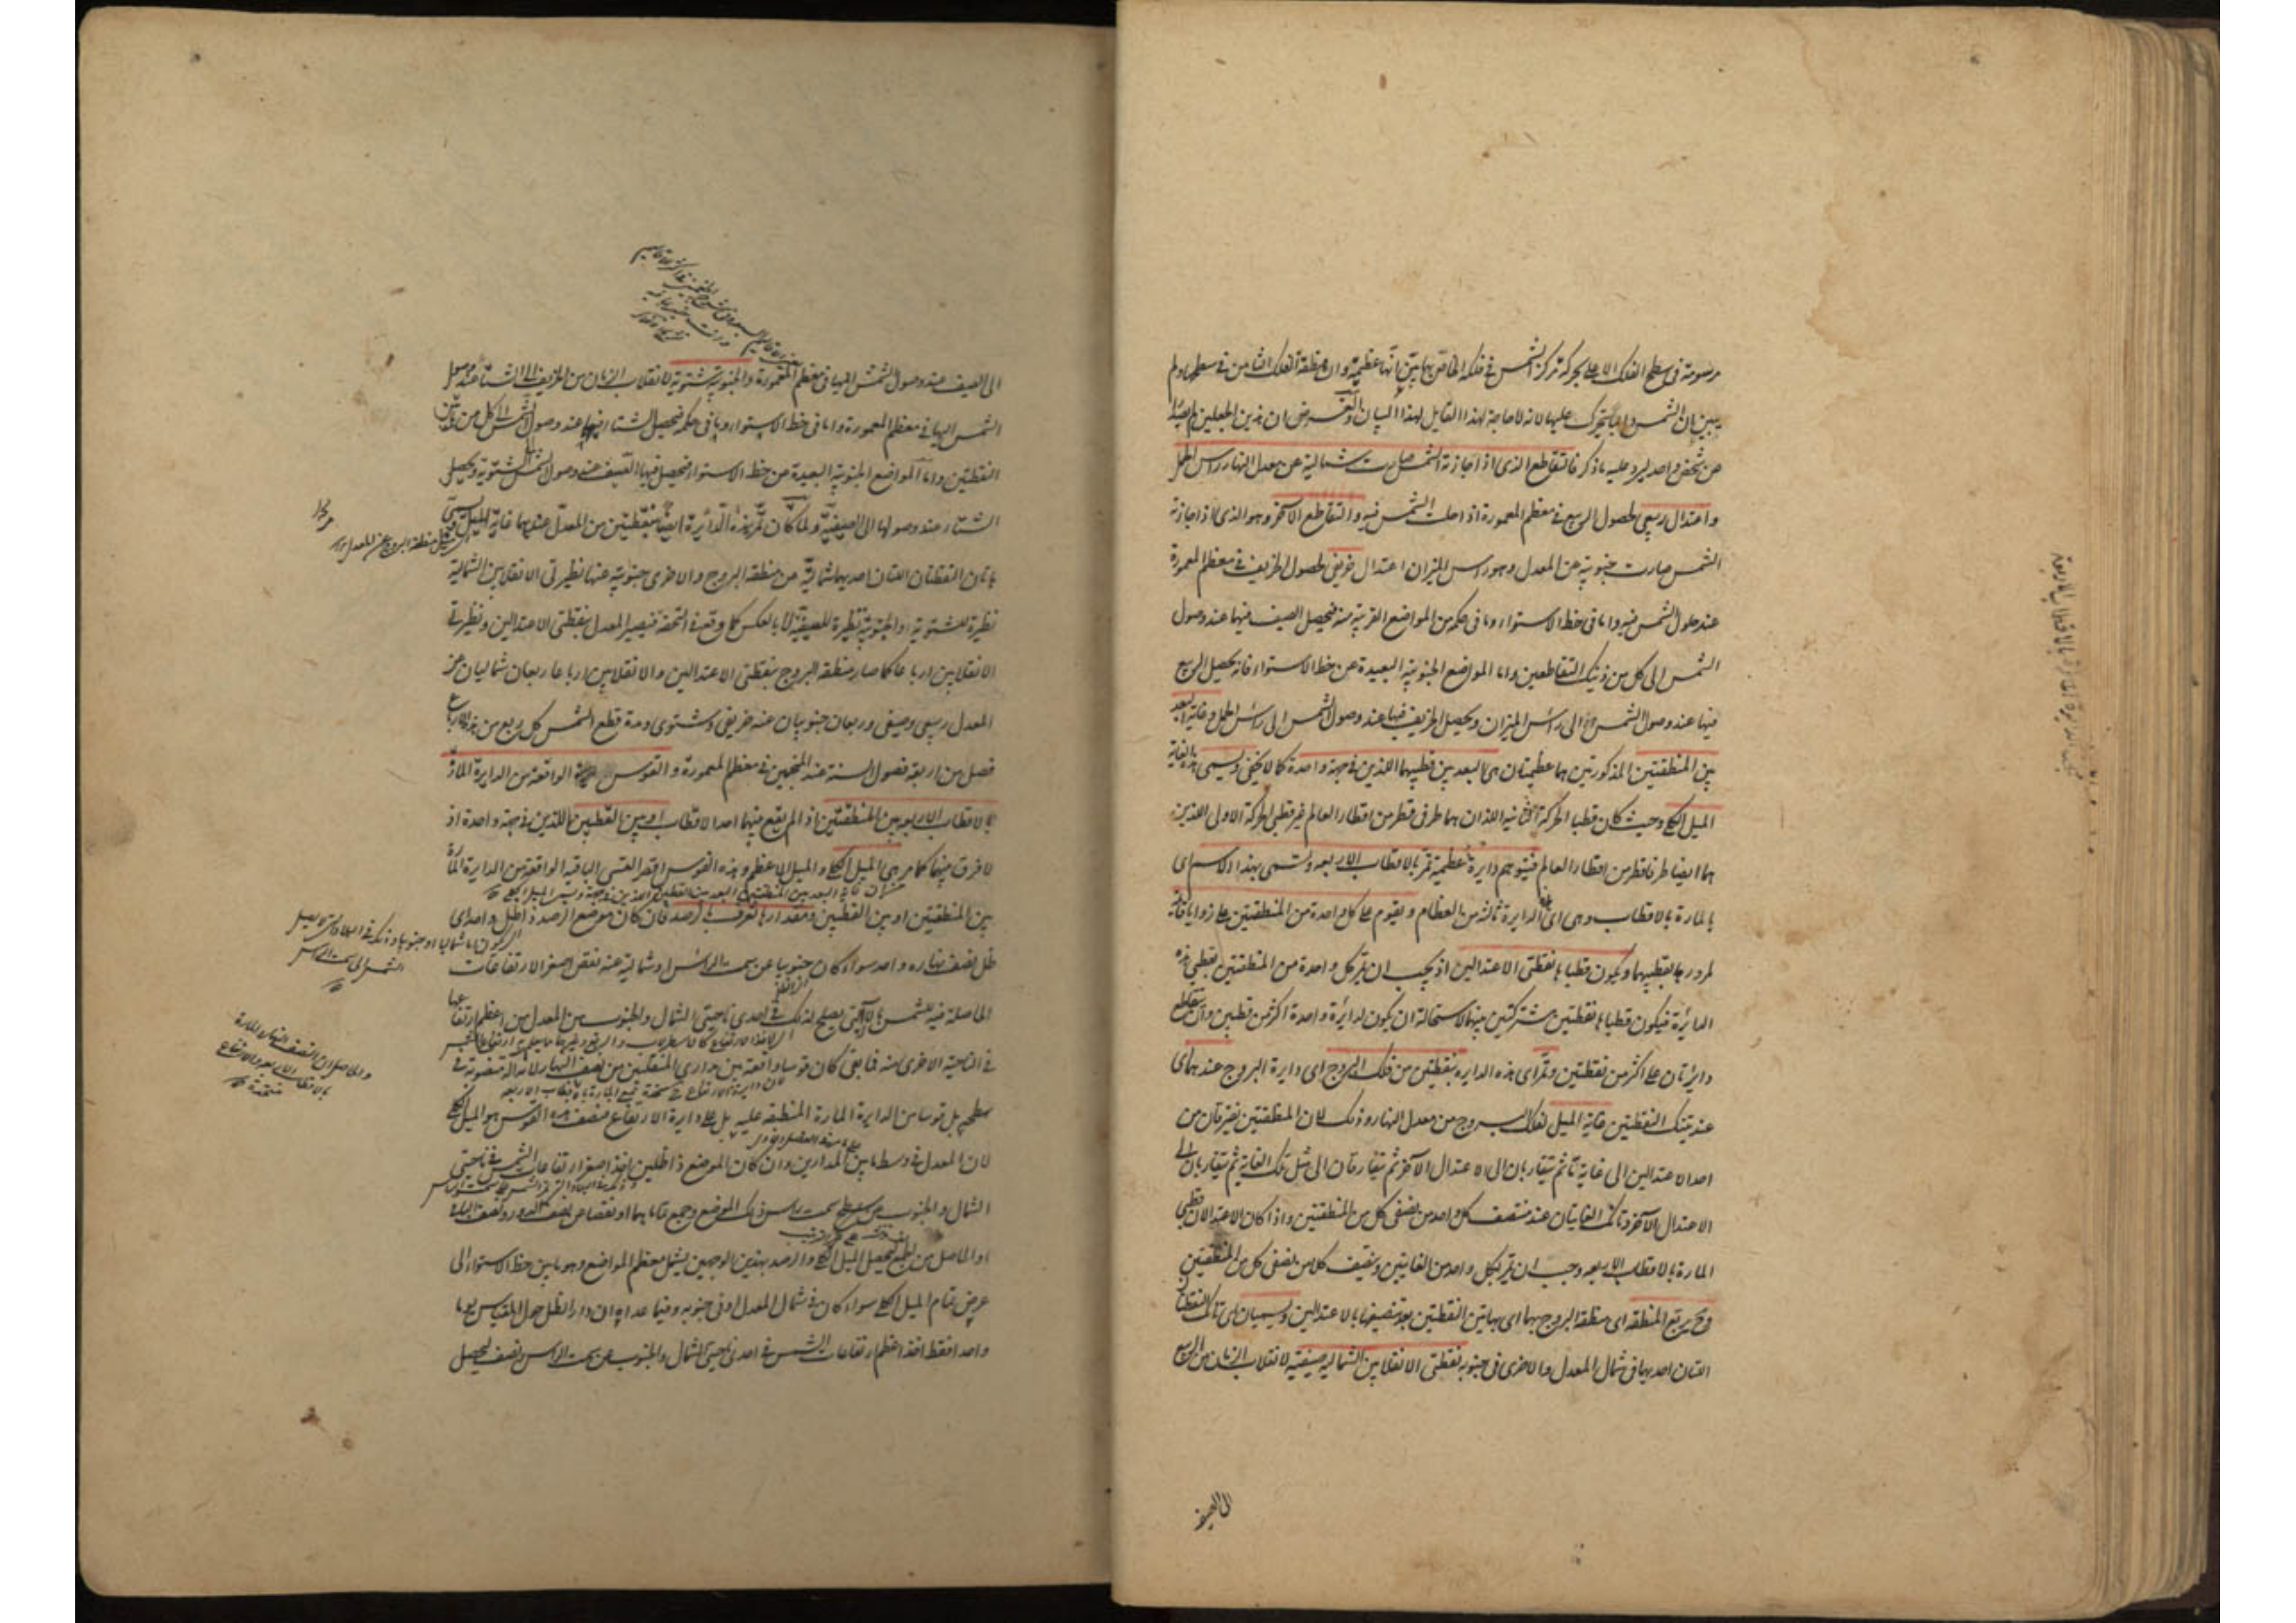 مرسومة فى سطح الفلك الاعلى بحركة مركز الشمس فى فلكه الخاص بها يبين انها عظيمة وان منطقة الفلك الثامن فى سطحها ولم
يبين ان الشمس دايما يتحرك عليها لانه لا حاجة لهذا القايل لهذا البيان والغرض ان هذين الجعلين لم يصدرا
عن شخص واحد ليرد عليه ما ذكر فالتقاطع الذى اذا جازته الشمس صارت شمالية عن معدل النهار راس الحمل
واعتدال ربيعى لحصول الربيع فى معظم المعمورة اذا حلت الشمس فيه والتقاطع الآخر وهو الذى اذا جازته
الشمس صارت جنوبية عن المعدل وهو راس الميزان اعتدال خريفى لحصول الخريف فى معظم المعمورة
عند حلول الشمس فيه واما فى خط الاستواء وما فى حكمه من المواضع القريبة منه فيحصل الصيف فيها عند وصول
الشمس الى كل من ذينك التقاطعين واما المواضع الجنوبية البعيدة عن خط الاستواء فانه يحصل الربيع
فيها عند وصول الشمس الى راس الميزان ويحصل الخريف فيها عند وصول الشمس الى راس الحمل وغاية البعد
بين المنطقتين المذكورتين هما عظيمتان هى البعد بين قطبيهما اللذين فى جهة واحدة كما لا يخفى ويسمى هذه الغاية
الميل الكلى وحيث كان قطبا الحركة الثانية اللذان هما طرفى قطر من اقطار العالم غير قطبى الحركة الاولى اللذين
هما ايضا طرفا قطر من اقطار العالم فيتوهم دايرة عظيمة تمر بالاقطاب الاربعة وتسمى بهذا الاسم اى
بالمارة بالاقطاب وهى اى الدايرة ثالثة من العظام ويقوم على كل واحدة من المنطقتين على زوايا قائمة
لمرورها بقطبيهما ويكون قطباها نقطتى الاعتدالين اذ يجب ان يمر كل واحدة من المنطقتين بقطبى هذه
الدائرة فيكون قطباها نقطتين مشتركتين بينهما لاستحالة ان يكون لدايرة واحدة اكثر من قطبين وان يتقاطع
دايرتان على اكثر من نقطتين وتمر اى هذه الدايرة بنقطتين من فلك البروج اى دايرة البروج عندهما اى
عند تينك النقطتين غاية الميل لفلك البروج من معدل النهار وذلك لان المنطقتين يفترقان من
احد الاعتدالين الى غاية ما ثم يتقاربان الى الاعتدال الآخر ثم يتفارقان الى مثل تلك الغاية ثم يتقاربان الى
الاعتدال الآخر وتانك الغايتان عند منتصف كل واحد من نصفى كل من المنطقتين واذا كان الاعتدالان قطبى
المارة بالاقطاب الاربعة وجب ان تمر بكل واحد من الغايتين وينصف كلا من نصفى كل من المنطقتين
وح يربع المنطقة اى منطقة البروج بهما اى بهاتين النقطتين بعد تنصيفها بالاعتدالين ويسميان اى تانك النقطتان
اللتان احديهما فى شمال المعدل والاخرى فى جنوبه نقطتى الانقلابين الشمالية صيفية لانقلاب الزمان من الربيع
الى الصيف
الى الصيف عند وصول الشمس اليها فى معظم المعمورة والجنوبية شتوية لانقلاب الزمان من الخريف الى الشتاء عند وصول
الشمس اليها فى معظم المعمورة واما فى خط الاستواء وما فى حكمه فيحصل الشتاء فيها عند وصول الشمس الى كل من هاتين
النقطتين واما المواضع الجنوبية البعيدة عن خط الاستواء فيحصل فيها الصيف عند وصول الشمس الى الشتوية ويحصل
الشتاء عند وصولها الى الصيفية ولما كان تمر هذه الدائرة ايضا بنقطتين من المعدل عندهما غاية الميل ويسمى
هاتان النقطتان اللتان احديهما شمالية عن منطقة البروج والاخرى جنوبية عنها نظيرتى الانقلابين الشمالية
نظيرة للشتوية والجنوبية نظيرة للصيفية لا بالعكس كما وقع فى التحفة فيصير المعدل بنقطتى الاعتدالين ونظيرتى
الانقلابين ارباعا كما صار منطقة البروج بنقطتى الاعتدالين والانقلابين ارباعا ربعان شماليان عن
المعدل ربيعى وصيفى وربعان جنوبيان عنه خريفى وشتوى ومدة قطع الشمس كل ربع من هذه الارباع
فصل من اربعة فصول السنة عند المنجمين فى معظم المعمورة والقوس الواقعة من الدايرة المارة
بالاقطاب الاربعة بين المنطقتين اذا لم يقع بينهما احد الاقطاب او بين القطبين اللذين فى جهة واحدة اذ
لا فرق بينهما كما مر هى الميل الكلى والميل الاعظم وهذه القوس اقصر القسى الباقية الواقعة من الدايرة المارة
بين المنطقتين او بين القطبين ومقدارها تعرف بالرصد فان كان موضع الرصد ذا ظل واحد اى
ظل نصف نهاره واحد سواء كان جنوبيا عن سمت الراس او شمالية عنه نقص اصغر الارتفاعات
الحاصلة فيه للشمس بالآلة التى يصلح لذلك فى احدى ناحيتى الشمال والجنوب من المعدل من اعظم ارتفاعها
فى الناحية الاخرى منه فما بقى كان قوسا واقعة بين مدارى المنقلبين من نصف النهار لان الآلة منصوبة فى
سطحه بل قوسا من الدايرة المارة المنطبقة عليه بل على دايرة الارتفاع فنصف هذه القوس هو الميل الكلى
لان المعدل فى وسط ما بين المدارين وان كان الموضع ذا ظلين اخذ اصغر ارتفاعات الشمس فى ناحيتى
الشمال والجنوب عن سمت راس ذلك الموضع وجمع تماماهما او نقصا من نصف الدور ونصف الباقى
او الحاصل من الجمع فيحصل الميل الكلى والرصد بهذين الوجهين يشمل معظم المواضع وهو ما بين خط الاستواء الى
عرض تمام الميل الكلى سواء كان فى شمال المعدل او فى جنوبه وفيما عداه ان دار الظل حول المقياس يوما
واحدا فقط اخذ اعظم ارتفاعات الشمس فى احدى ناحيتى الشمال والجنوب عن سمت الراس نصف ليحصل
منطقة البروج عن المعدل
والحاصل ان نصف النهار والمارة
بالاقطاب الاربعة والارتفاع
متحدة